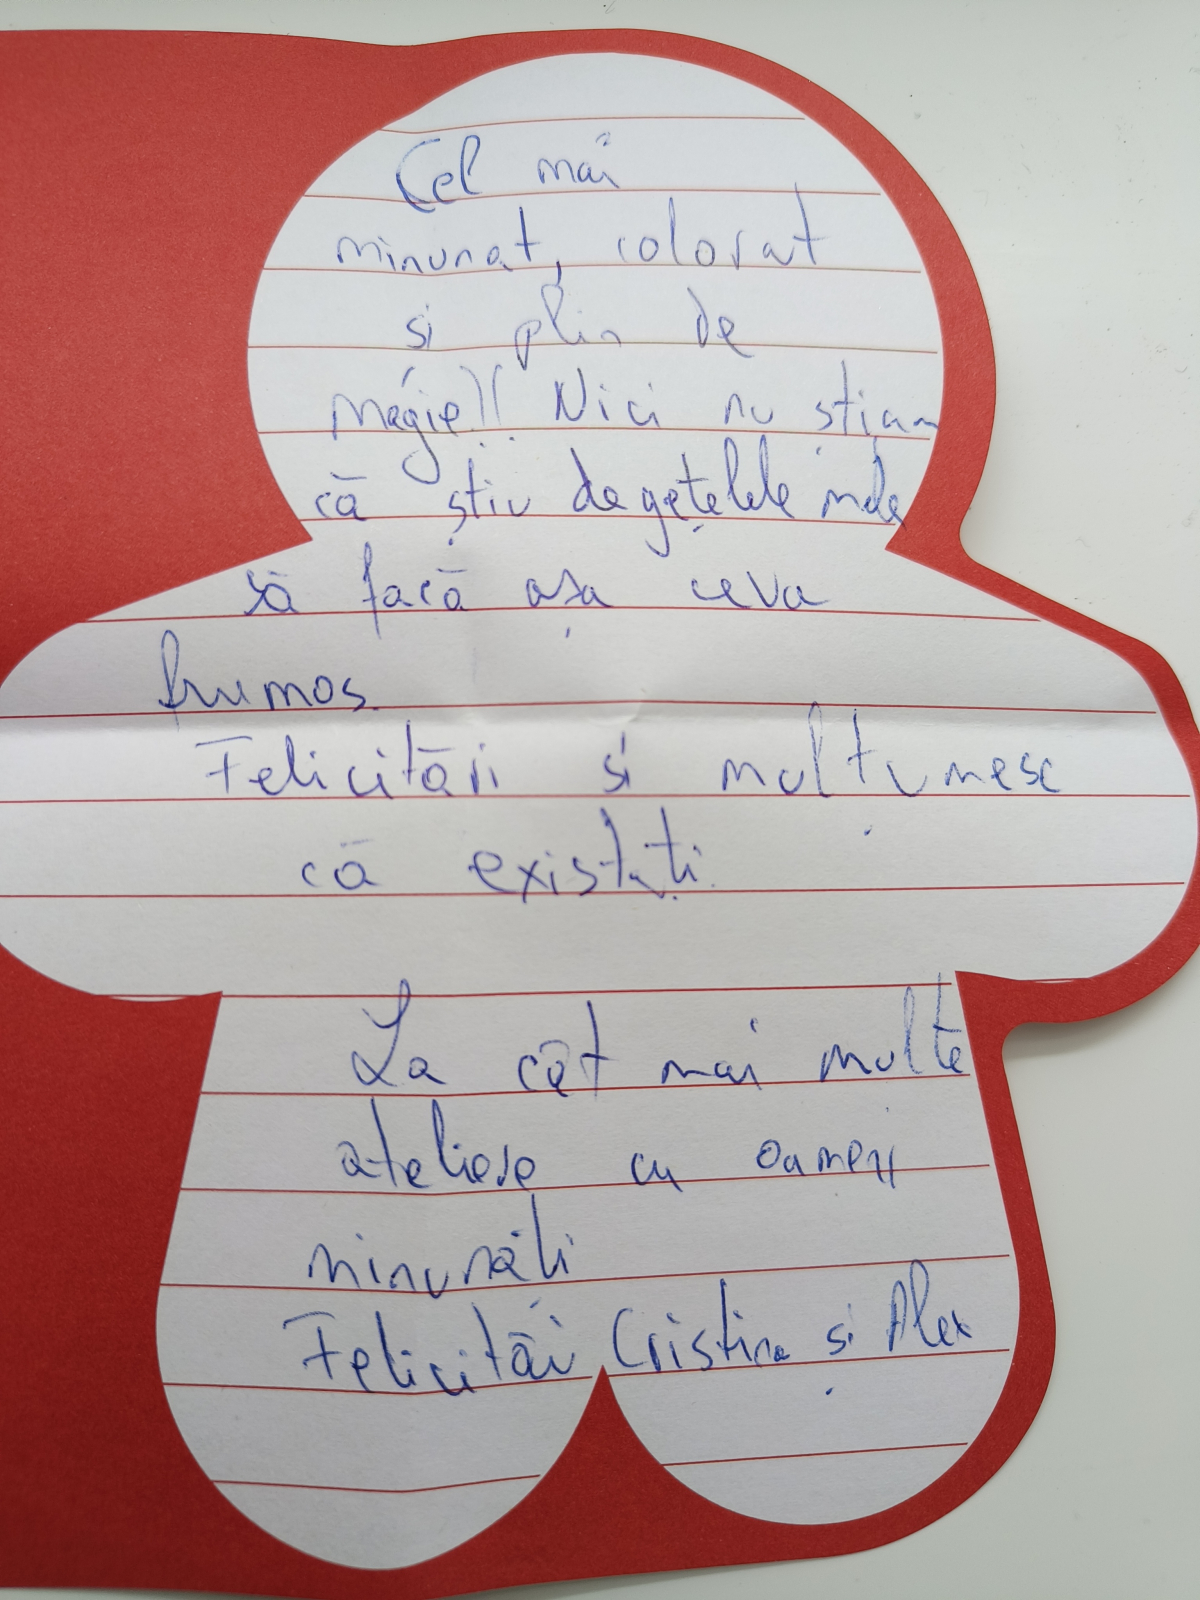 Cel mai
minunat, colorat
si plin de
magie!! Nici nu știam
că știu degețelele mele
să facă așa ceva
frumos.
Felicitări si mulțumesc
că existați.
La cât mai multe
ateliere cu oameni
minunați
Felicitări Cristina și Alex